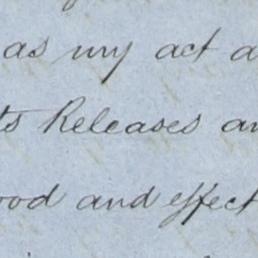 as my act a
ts Releases an
ood and effect